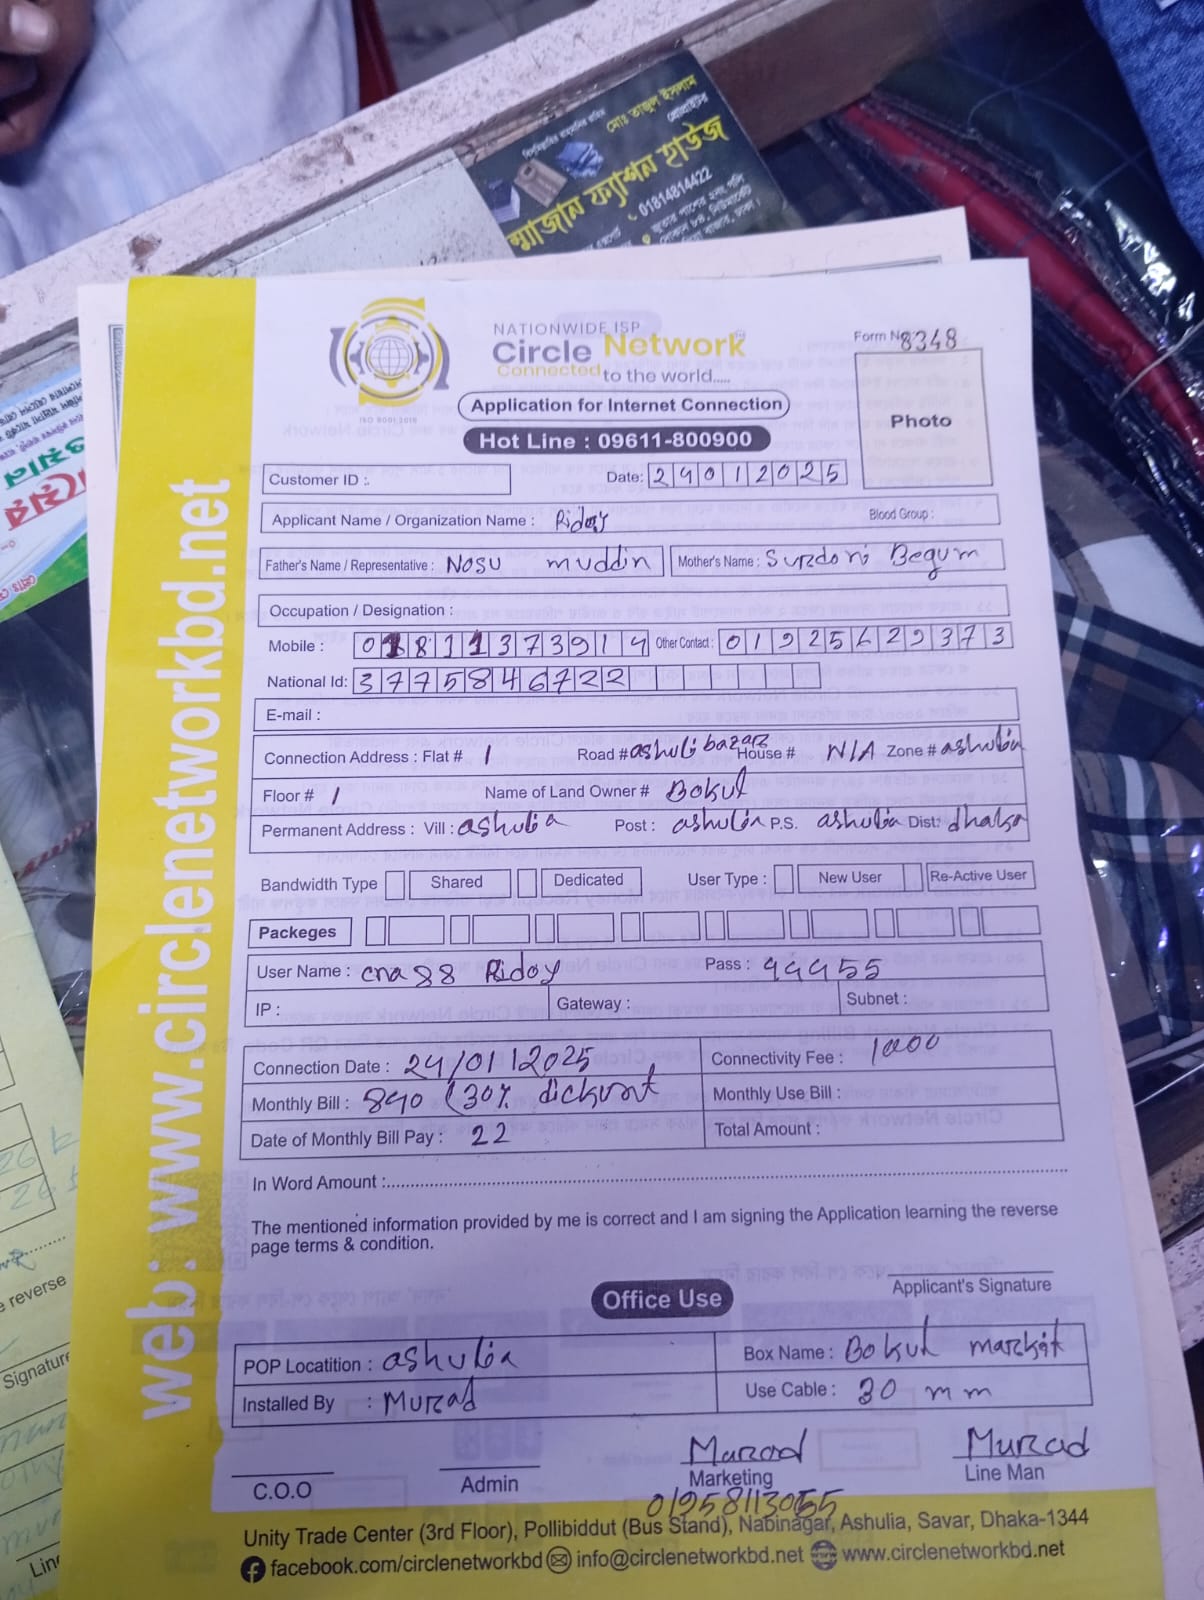 মোঃ তাজুল ইসলাম
প্রোপ্রাইটর
ম্মাজান ফ্যাশন হাউজ
01814814422
NATIONWIDE ISP
Circle Network
Connected to the world.....
ISO 9001:2015
Application for Internet Connection
Hot Line : 09611-800900
Form No 8348
Photo
Customer ID :
Date: 24012025
Applicant Name / Organization Name : Ridoy Blood Group :
Father's Name / Representative : Nosu muddin Mother's Name : Surdoni Begum
Occupation / Designation :
Mobile : 01811373914 Other Contact : 01925629373
National Id: 3775846722
E-mail :
Connection Address : Flat # 1 Road # ashuli bazar House # N/A Zone # ashulia
Floor # 1 Name of Land Owner # Bokul
Permanent Address : Vill : ashulia Post : ashulia P.S. ashulia Dist: dhaka
Bandwidth Type Shared Dedicated User Type : New User Re-Active User
Packeges
User Name : cna88 Ridoy Pass : 44455
IP : Gateway : Subnet :
Connection Date : 24/01/2025 Connectivity Fee : 1000
Monthly Bill : 840 (30% dickunt Monthly Use Bill :
Date of Monthly Bill Pay : 22 Total Amount :
In Word Amount :
The mentioned information provided by me is correct and I am signing the Application learning the reverse
page terms & condition.
Applicant's Signature
Office Use
POP Locatition : ashulia Box Name : Bokul market
Installed By : Murad Use Cable : 30 mm
Murad Murad
C.O.O Admin Marketing Line Man
01958113055
Unity Trade Center (3rd Floor), Pollibiddut (Bus Stand), Nabinagar, Ashulia, Savar, Dhaka-1344
facebook.com/circlenetworkbd info@circlenetworkbd.net www.circlenetworkbd.net
web: www.circlenetworkbd.net
e reverse
Signature